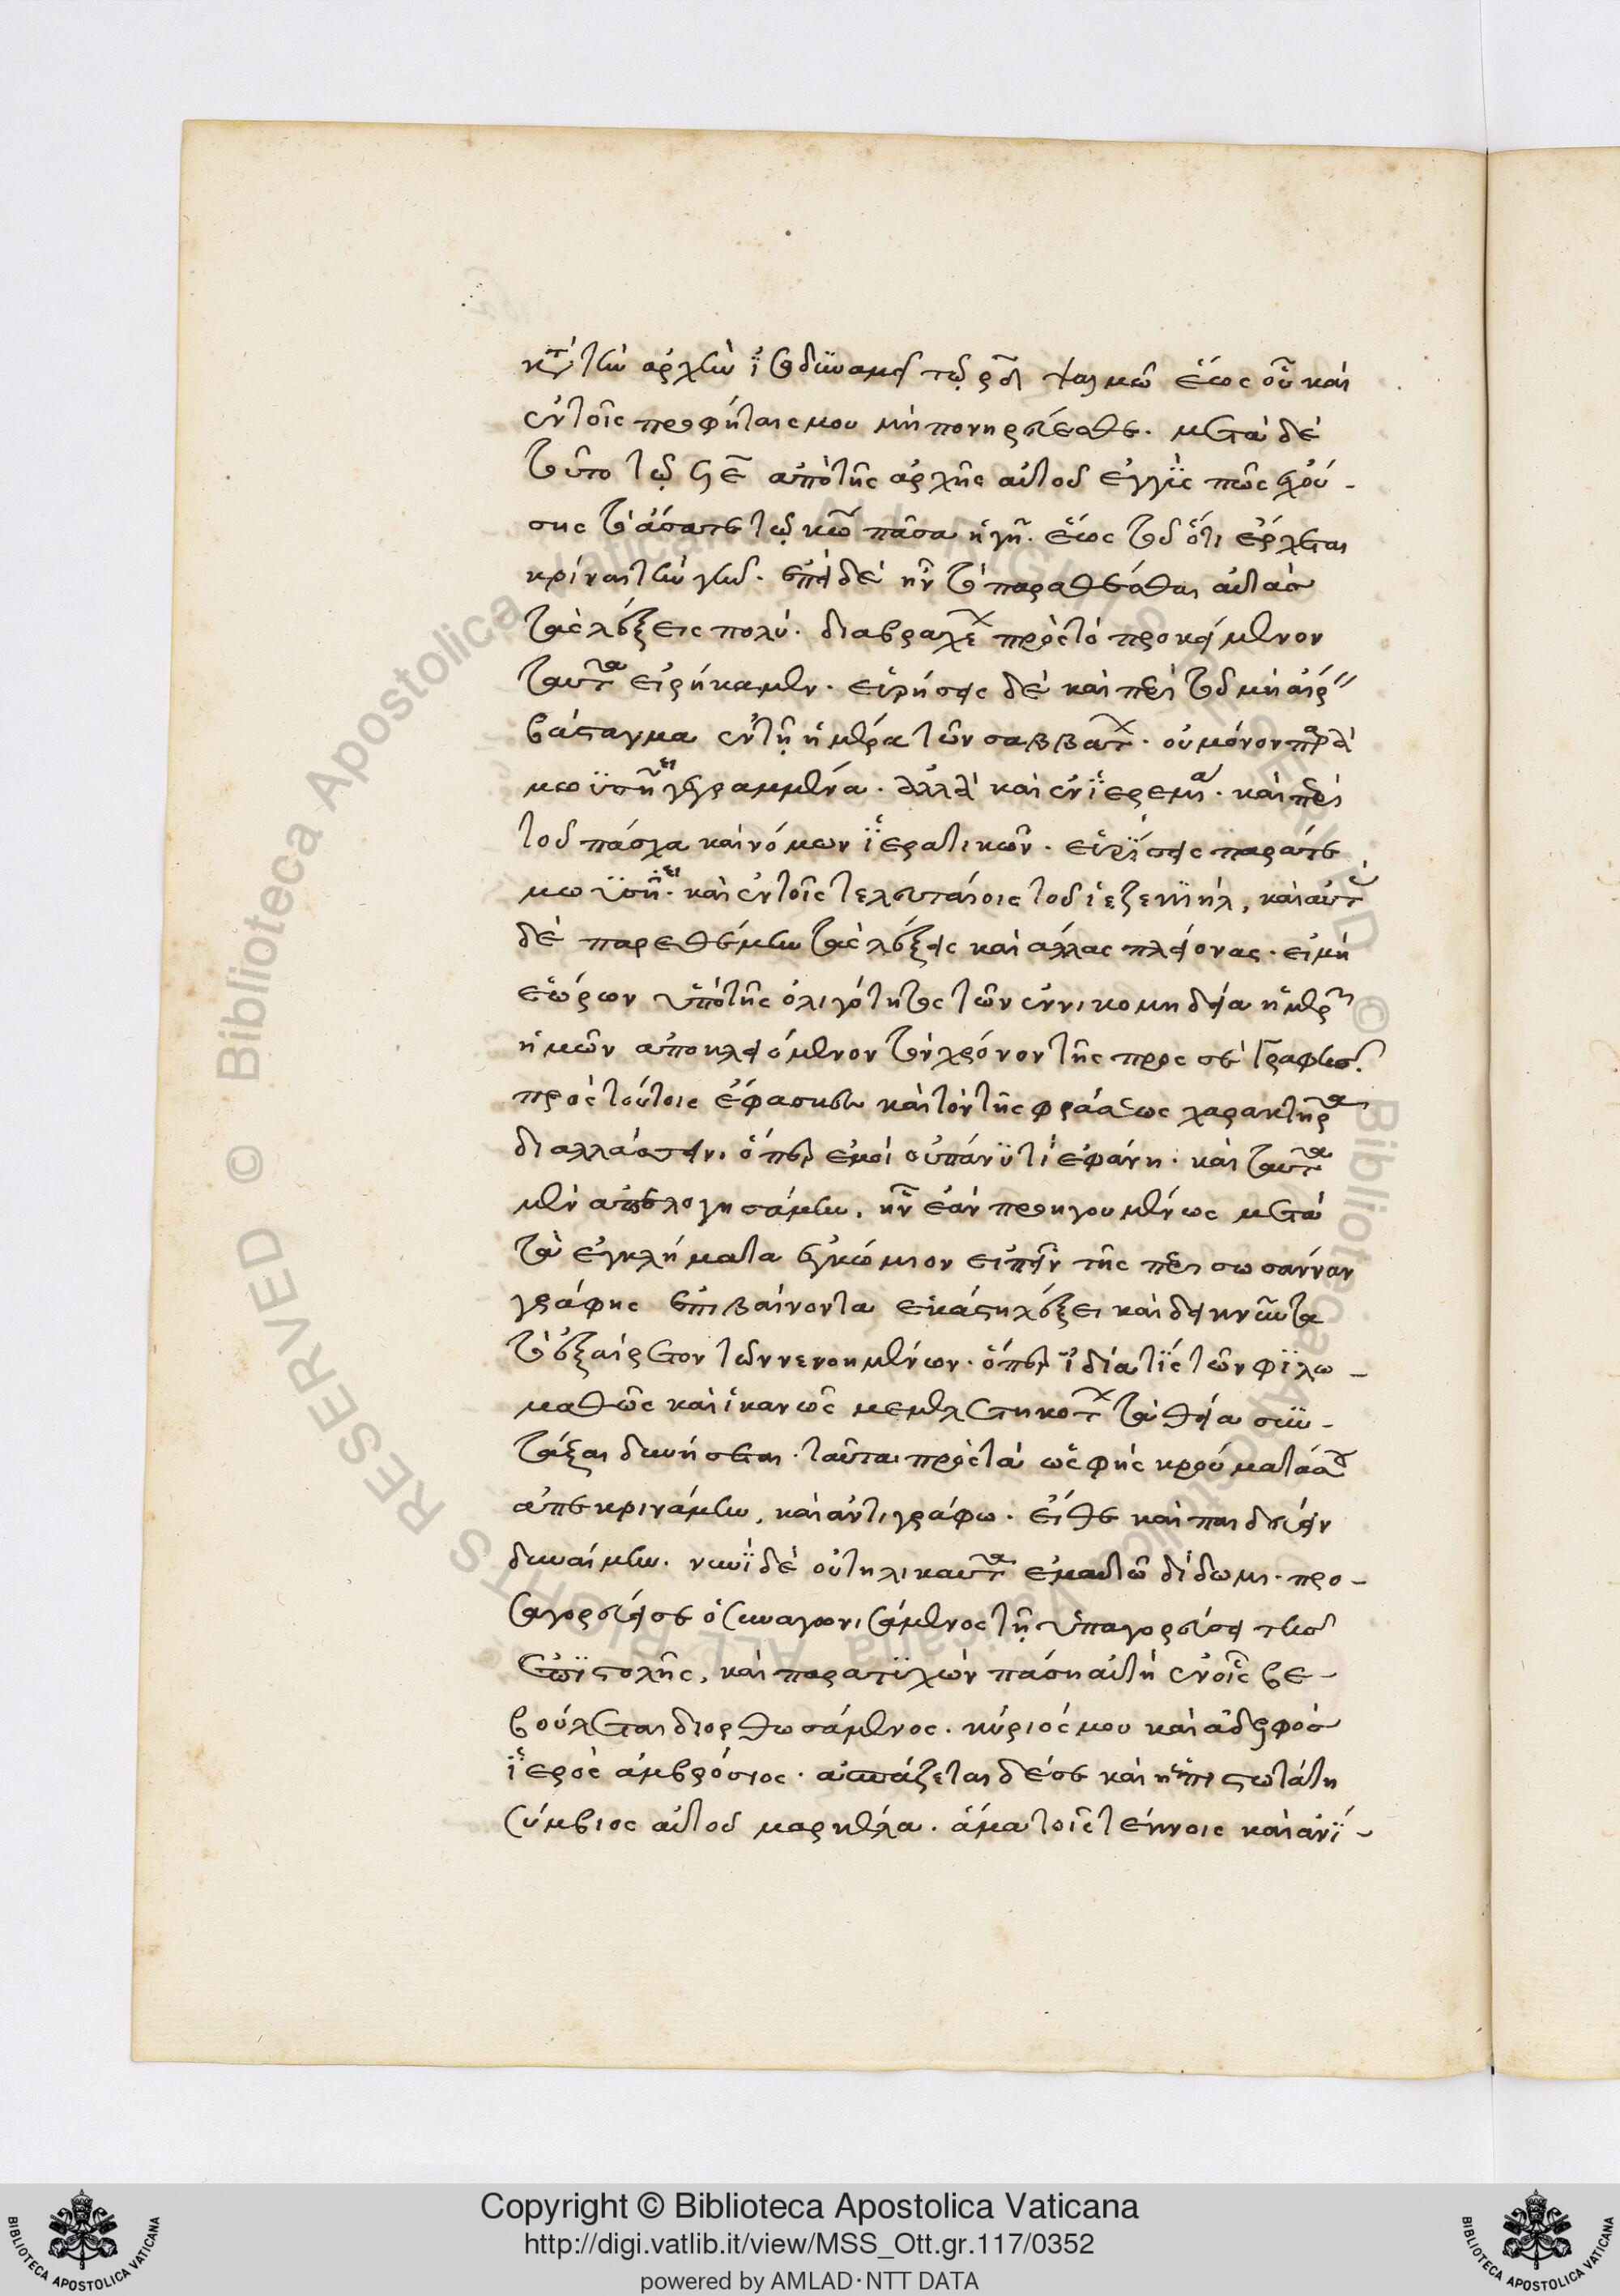 κατὰ τὴν ἀρχὴν ἰσοδυναμεῖ τῷ ρδ ψαλμῶ ἕως οὗ καὶ
ἐν τοῖς προφήταις μου μὴ πονηρεύεσθε. μετὰ δὲ
τοῦτο τῷ ϟε ἀπὸ τῆς ἀρχῆς αὐτοῦ ἐγγύς πως ἐχού-
σης τὸ ᾄσατε τῷ κω πᾶσα ἡ γῆ. ἕως τοῦ ὅτι ἔρχεται
κρίναι τὴν γῆν. ἐπεὶ δὲ ἦν τὸ παραθέσθαι αὐτὰς
τὰς λέξεις πολύ. διαβραχε πρὸς τὸ προκείμενον
ταῦτα εἰρήκαμεν. εὑρήσεις δὲ καὶ περὶ τοῦ μὴ αἴρ
βάσταγμα ἐν τῇ ἡμέρα τῶν σαββατ. οὐ μόνον παρὰ
μωϋσῆ γεγραμμένα. ἀλλὰ καὶ ἐν ἱερεμία. καὶ περὶ
τοῦ πάσχα καὶ νόμων ἱερατικῶν. εὑρίσεις παρά τε
μωϋσῆ. καὶ ἐν τοῖς τελευταίοις τοῦ ἰεζεκιὴλ, καὶ αὐτ
δὲ παρεθέμην τὰς λέξεις καὶ ἄλλας πλείονας. εἰ μὴ
ἑώρων ὑπὸ τῆς ὀλιγότητος τῶν ἐν νικομηδεία ἡμερῶν
ἡμῶν ἀποκλειόμενον τὸν χρόνον τῆς προς σὲ γραφῆς.
πρὸς τούτοις ἔφασκεν καὶ τὸν τῆς φράσεως χαρακτῆρα
διαλλάσσειν. ὅπερ ἐμοὶ οὐ πάνυ τι ἐφάνη. καὶ ταῦτα
μὲν ἀπελογησάμην. ἦν ἐὰν προηγουμένως μετὰ
τὰ ἐγκλήματα ἐγκώμιον εἰπεῖν τῆς περι σωσάνναν
γράφης ἐπιβαίνοντα ἑκάστη λέξει καὶ δεικνῦντα
τὸ ἐξαίρετον τῶν νενοημένων. ὅπερ ἰδία τίς τῶν φϊλω-
μαθῶς καὶ ἱκανῶς μεμελετηκοτ τὰ θεία συν-
τάξαι δυνήσεται. ταῦτα πρὸς τὰ ὡς φὴς κρούματα
ἀπεκρινάμην, καὶ ἀντιγράφω. εἴθε καὶ παιδεύειν
δυναίμην. νυνῒ δὲ οὐ τηλικαῦτα ἐμαυτῶ δίδωμι. προ-
σαγορεύει σε ὁ συναγωνισάμενος τῇ ὑπαγορεύσει τῆς
ἐπϊστολῆς, καὶ παρατϋχὼν πάση αὐτῇ ἐν οἷς βε-
βούλεται διορθωσάμενος. κύριός μου καὶ ἀδελφὸς
ἱερὸς ἀμβρόσιος. ἀσπάζεται δέ σε καὶ ἡ πιστωτάτη
σύμβιος αὐτοῦ μαρκέλα. ἅμα τοῖς τέκνοις καὶ ἀνϊ-
Copyright © Biblioteca Apostolica Vaticana
http://digi.vatlib.it/view/MSS_Ott.gr.117/0352
powered by AMLAD·NTT DATA